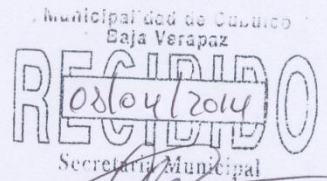 Municipalidad de Cubulco
Baja Verapaz
RECIBIDO
08/04/2014
Secretaria Municipal